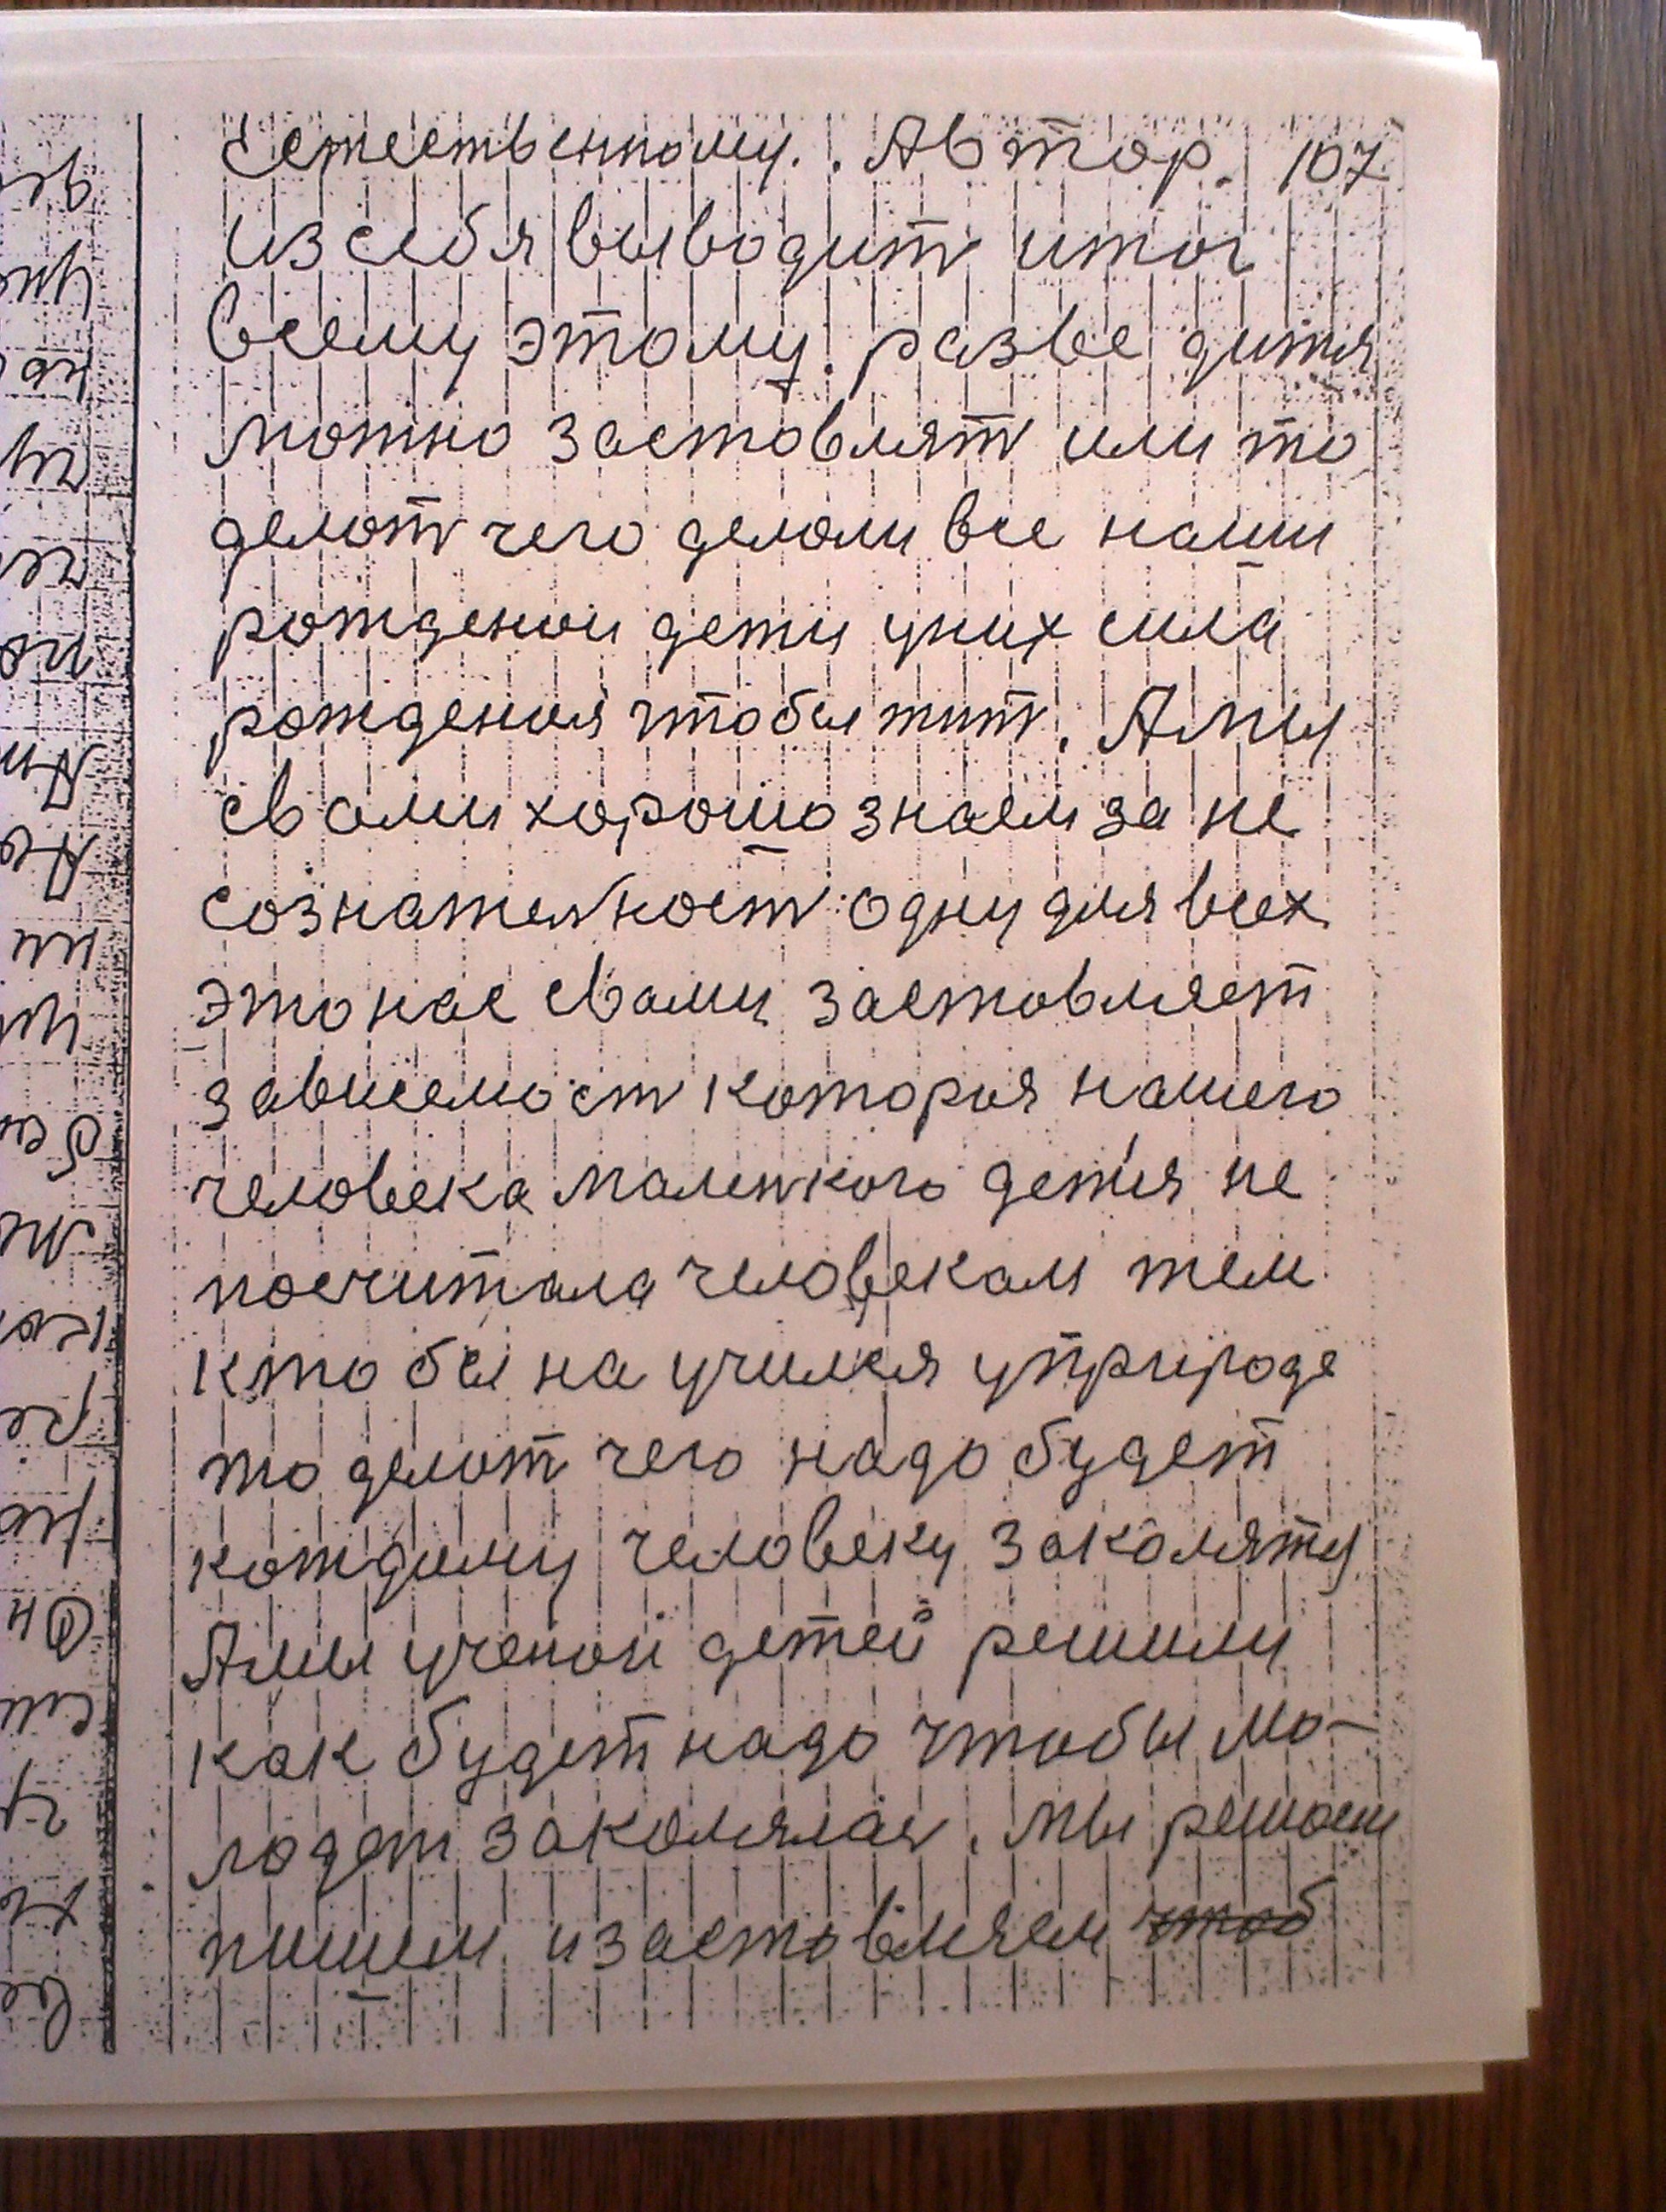 Естественному. . Автор. 107
из себя выводит итог
всему этому. разве дитя
можно заставлят или то
делат чего делали все наши
рожденаи дети у них сила
рождения чтобы жит. А мы
свами хорошо знаем за не
сознателност одну для всех
это нас свами заставляет
зависемост которыя нашего
человека маленкого детя не
посчитала человекам тем
кто бы на учился уприроде
то делат чего надо будет
кождому человеку заколяту
А мы ученаи детей решили
как будет надо чтобы мо-
лодеж заколялас. Мы решаем
пишем и заставляем чтоб